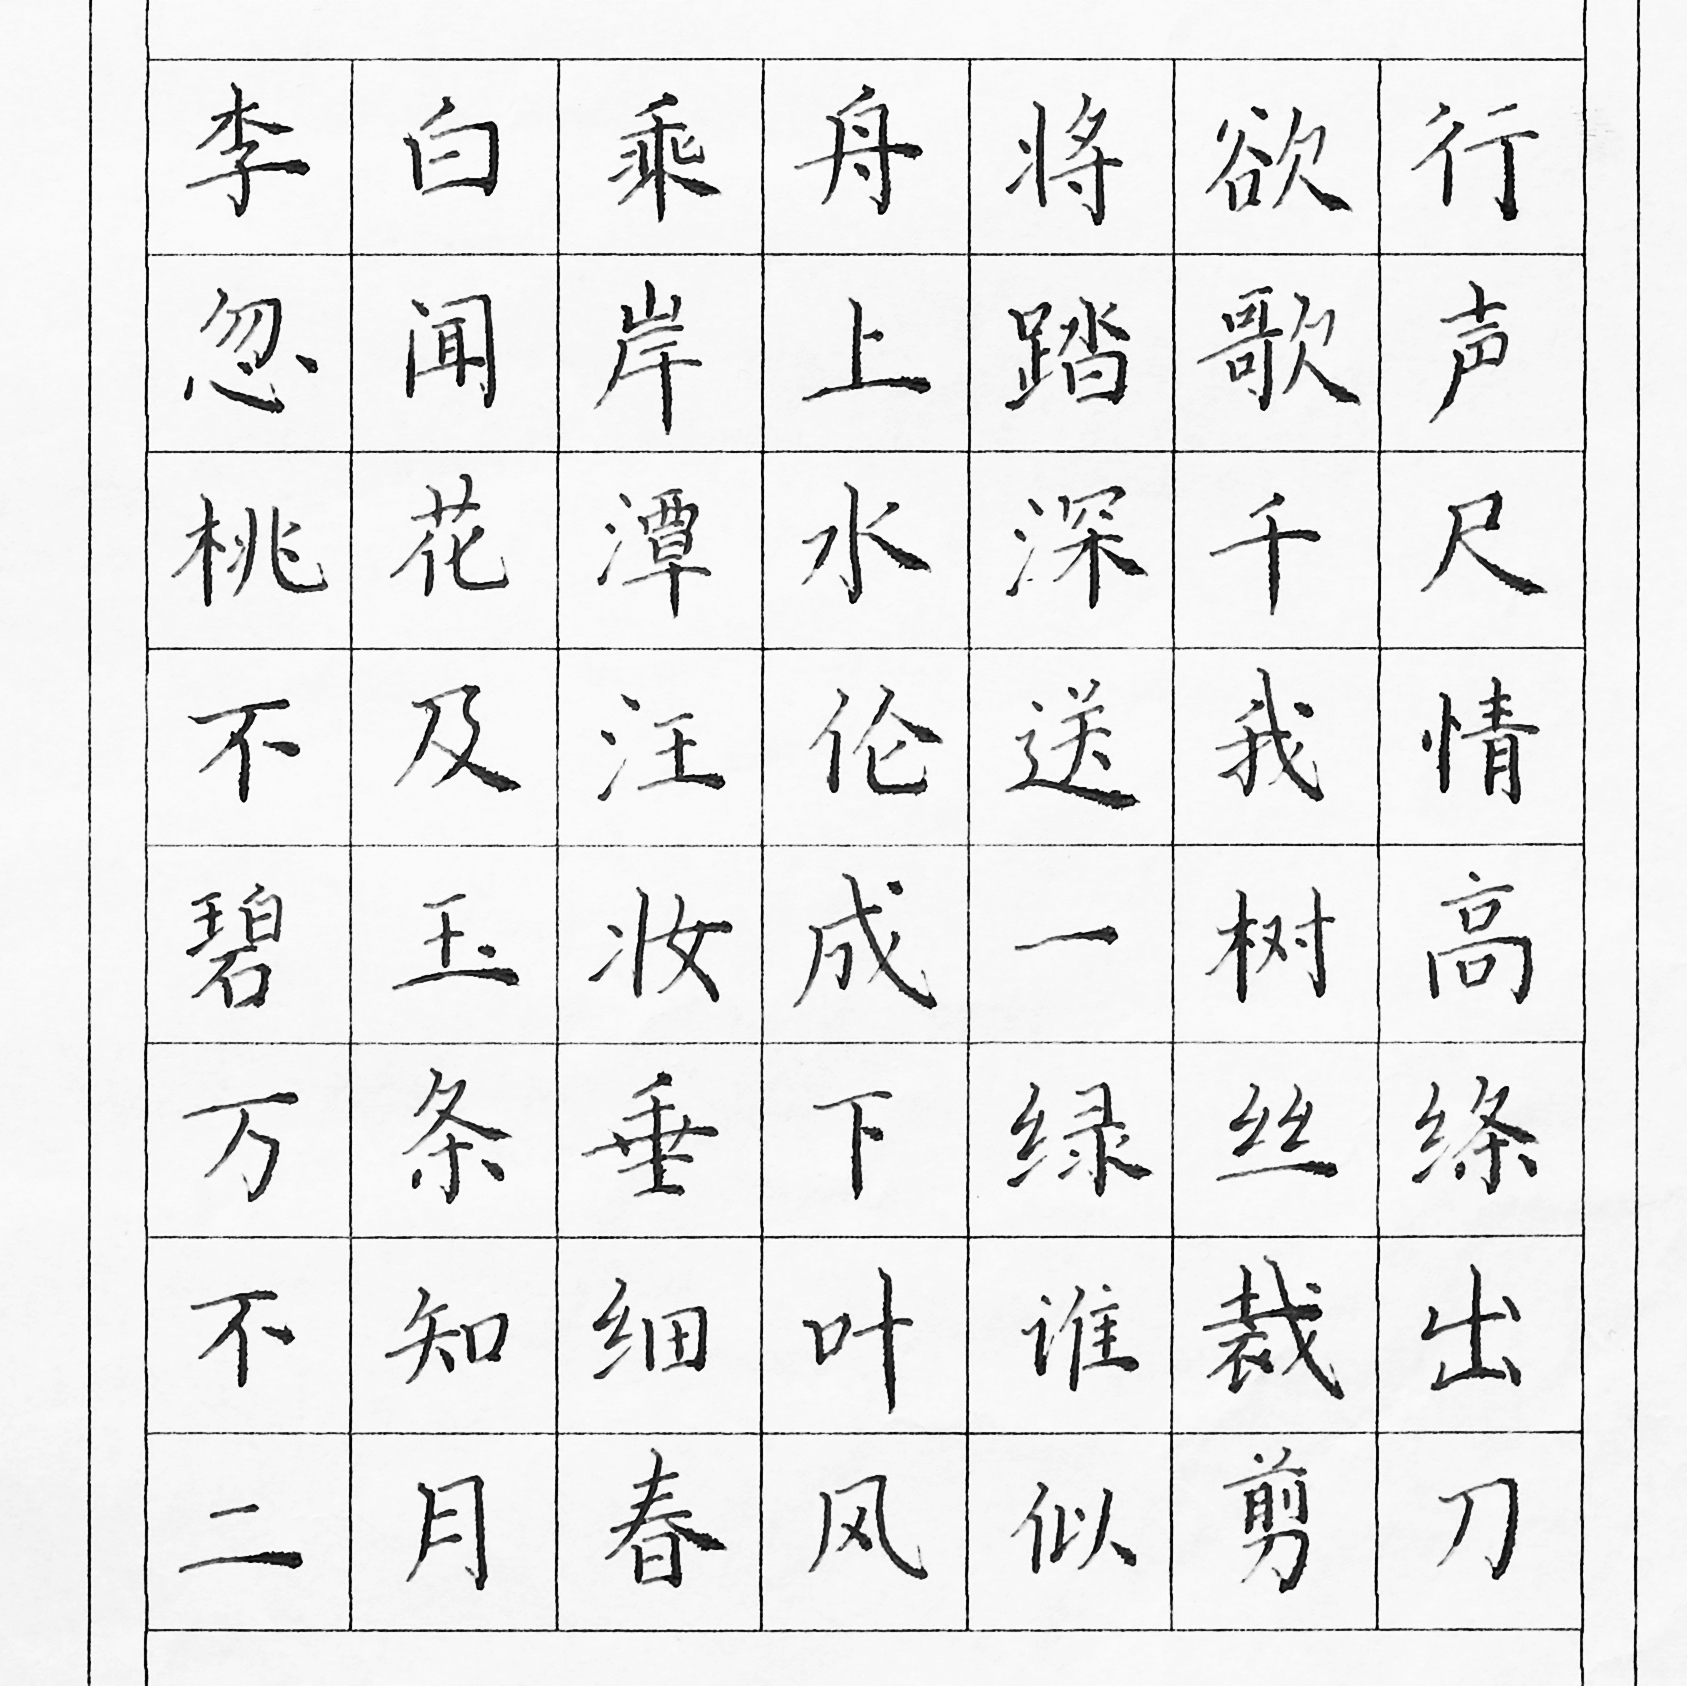 李白乘舟将欲行
忽闻岸上踏歌声
桃花潭水深千尺
不及汪伦送我情
碧玉妆成一树高
万条垂下绿丝绦
不知细叶谁裁出
二月春风似剪刀